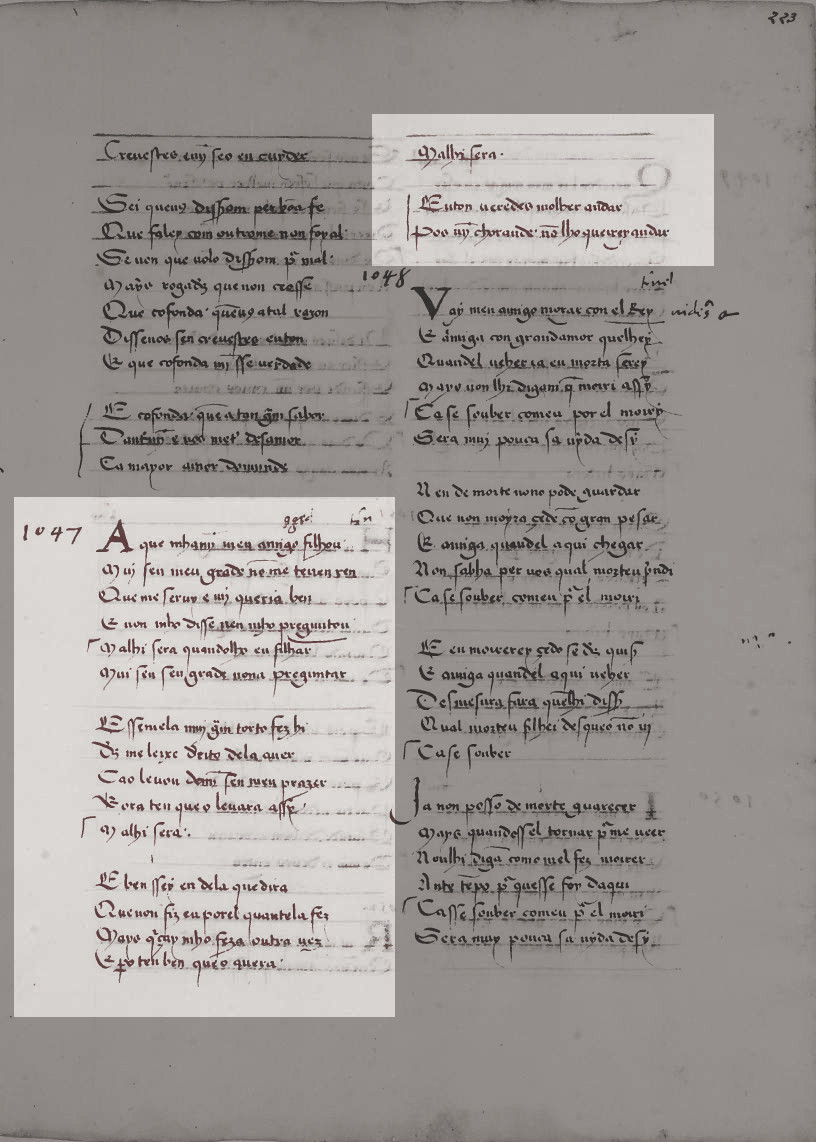 223
Creuestes emj̄ seo en cuydeẽ
Sei queuꝯ dissom per bõa fe
Que faley com outrome non foy al
Se uen que uolo dissom pʳ mal
Mays rogadꝯ que non creesse
Que cofonda queuꝯ atal razon
Dissenos sen creuestes enton
E que cofonda mj̄ sse uerdade
E cofonda que a ton gram sabor
Ca mayor amer
1047
A que mhamj̄ meu amigo filhou
Muj sen meu grado nō me teuen ren
Que me seruy e mj̄ queria ben
E non mho disse nen mho preguntou
Malhi sera quandolho eu filhar
Mui sen seu grado nona preguntar
Esseuela muj gram torto fez hi
Ds me leixe dereito dela auer
Cao leuou demj̄ sen meu prazer
E ora ten que o leuara assy
Malhi sera
E ben ssey en dela que dira
Que non fiz eu porel quantela fez
Mays qʳçay mho feza outra uez
E pero ten ben que o auera
Malhi sera
Enton ueredes molher andar
Pos mj̄ chorando nō lho querrey andar
1048
Vay meu amigo morar con el Rey
E amiga con grandamor quelhey
Quandel ueher ia eu morta serey
Mays non lhi digam q̄ moiri assy
Ca se souber comeu por el moiry
Sera muj pouca sa uyda desy
N en de morte nono pode guardar
Que non moyra çedo cō gran pesar
E amiga quandel aqui chegar
Non sabha per uos qual morteu prendi
Ca se souber comeu pʳ el moiri
E eu moirerey çedo se ds quis
E amiga quandel aqui ueher
Desmesura fara quelhi diss
Qual morteu filhei desqueo nō ui
Ca se souber
Ja non posso de morte guarecer
Mays quandossel tornar pʳ me ueer
Noulhi digā como mel fez moirer
Ante tēpo pʳ quesse foy daqui
Casse souber comeu pʳ el moiri
Sera muy pouca sa uyda desy